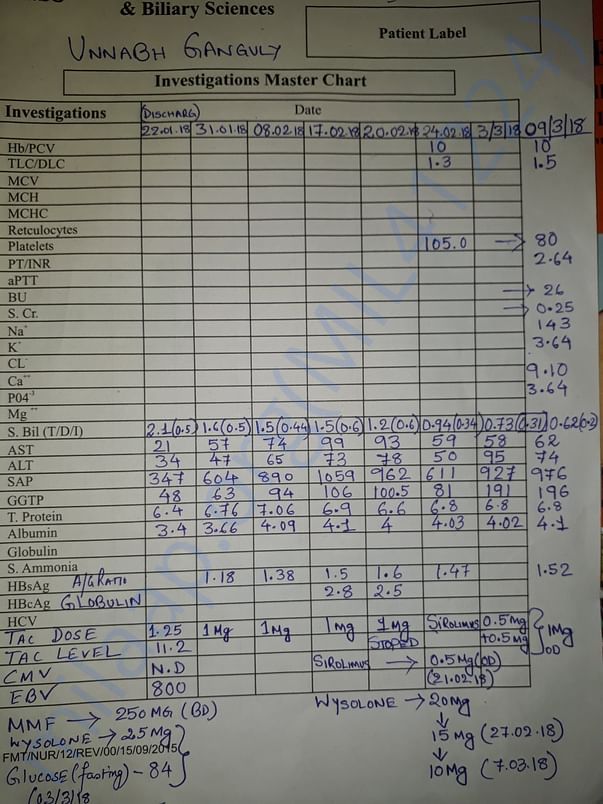 & Biliary Sciences
UNNABH GANGULY
Patient Label
Investigations Master Chart
Investigations (DISCHARG) Date
22.01.18 31.01.18 08.02.18 17.02.18 20.02.18 24.02.18 3/3/18 09/3/18
Hb/PCV 10 10
TLC/DLC 1.3 1.5
MCV
MCH
MCHC
Retculocytes
Platelets 105.0 → 80
PT/INR 2.64
aPTT
BU → 26
S. Cr. → 0.25
Na⁺ 143
K⁺ 3.64
CL⁻
Ca⁺⁺ 9.10
P04⁻³ 3.64
Mg⁺⁺
S. Bil (T/D/I) 2.1(0.5) 1.6(0.5) 1.5(0.44) 1.5(0.6) 1.2(0.6) 0.94(0.34) 0.73(0.31) 0.62(0.2)
AST 21 57 74 99 93 59 58 62
ALT 34 47 65 73 78 50 95 74
SAP 347 604 890 1059 962 611 927 976
GGTP 48 63 94 106 100.5 81 191 196
T. Protein 6.4 6.76 7.06 6.9 6.6 6.8 6.8 6.8
Albumin 3.4 3.66 4.09 4.1 4 4.03 4.02 4.1
Globulin
S. Ammonia
HBsAg A/G RATIO 1.18 1.38 1.5 1.6 1.47 1.52
HBcAg GLOBULIN 2.8 2.5
HCV
TAC DOSE 1.25 1Mg 1Mg 1mg 1mg SIROLIMUS 0.5mg
TAC LEVEL 11.2 STOPED +0.5mg } 1Mg OD
CMV N.D SIROLIMUS → 0.5Mg(OD)
EBV 800 (21.02.18)
MMF → 250 MG (BD) WYSOLONE → 20mg
WYSOLONE → 25Mg 15 Mg (27.02.18)
FMT/NUR/12/REV/00/15/09/2015
Glucose (fasting) - 84 10 Mg (7.03.18)
(03/3/18
milaap.org(MIL41124)